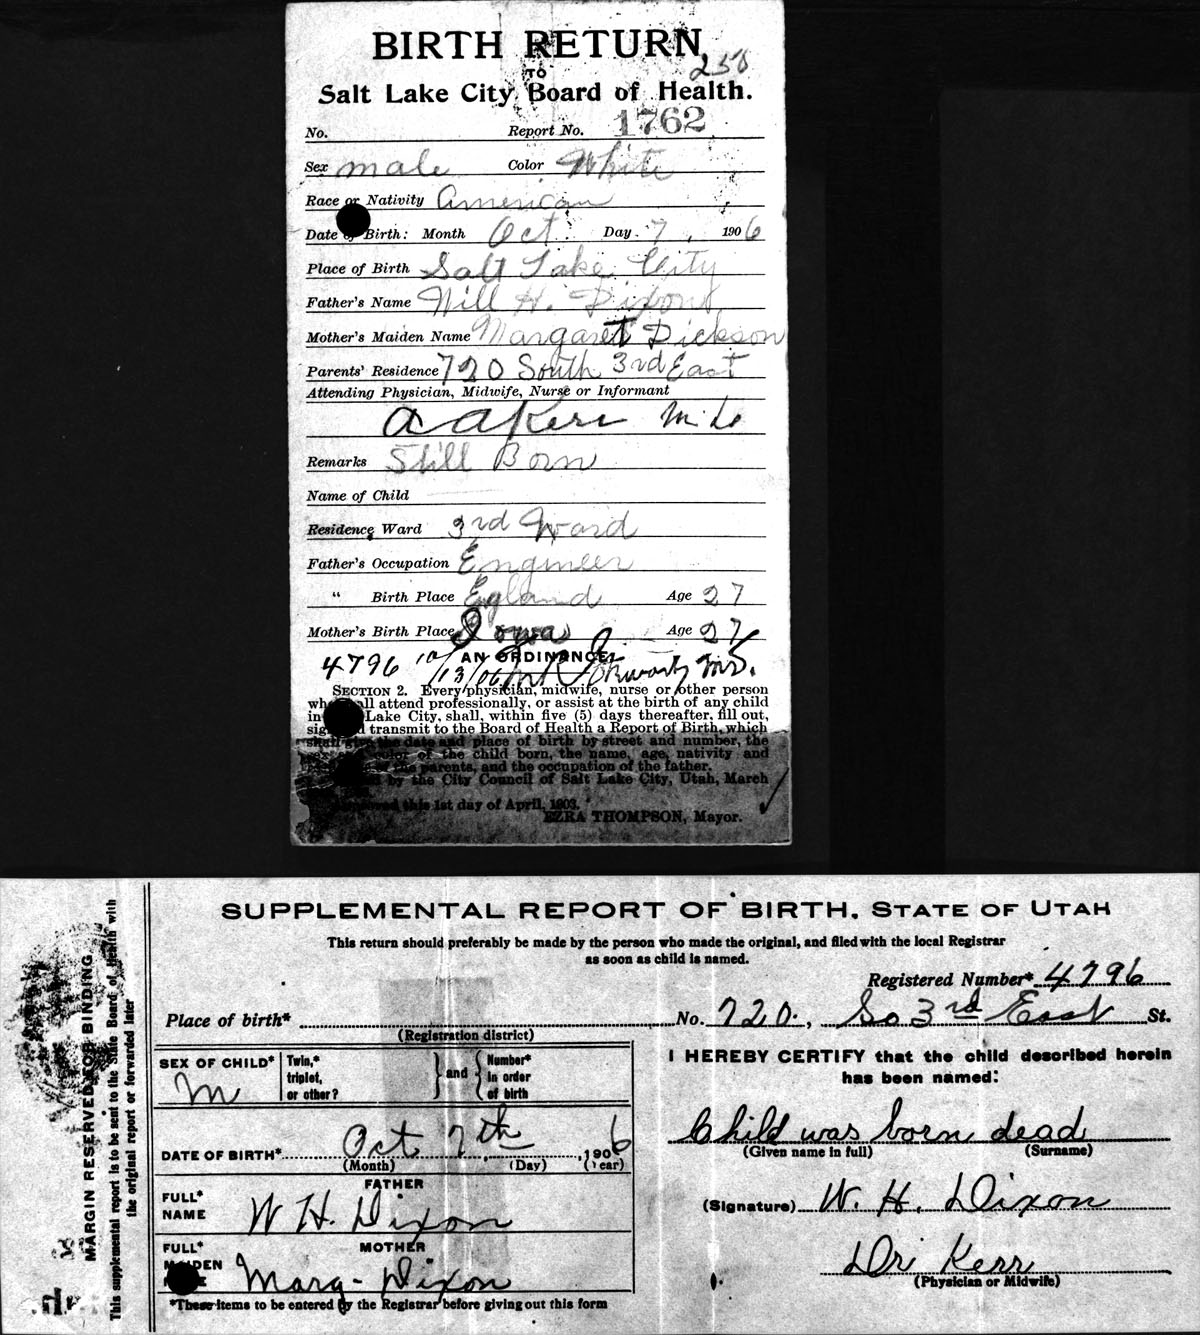 BIRTH RETURN
250
TO
Salt Lake City Board of Health.
No. Report No. 1762
Sex male Color White
Race or Nativity American
Date of Birth: Month Oct Day 7, 1906
Place of Birth Salt Lake City
Father's Name Will H. Dixon
Mother's Maiden Name Margaret Dickson
Parents' Residence 720 South 3rd East
Attending Physician, Midwife, Nurse or Informant
A A Kerr M.D.
Remarks Still Born
Name of Child
Residence Ward 3rd Ward
Father's Occupation Engineer
" Birth Place Egland Age 27
Mother's Birth Place Iowa Age 27
AN ORDINANCE
4796 10/13/06
SECTION 2. Every physician, midwife, nurse or other person
who shall attend professionally, or assist at the birth of any child
in Lake City, shall, within five (5) days thereafter, fill out,
sign and transmit to the Board of Health a Report of Birth, which
shall give the date and place of birth by street and number, the
color of the child born, the name, age, nativity and
of the parents, and the occupation of the father.
by the City Council of Salt Lake City, Utah, March
this 1st day of April, 1903.
EZRA THOMPSON, Mayor.
SUPPLEMENTAL REPORT OF BIRTH. STATE OF UTAH
This return should preferably be made by the person who made the original, and filed with the local Registrar
as soon as child is named.
Registered Number* 4796
Place of birth* No. 720, So 3rd East St.
(Registration district)
SEX OF CHILD* M
Twin,* triplet, or other?
and
Number* in order of birth
DATE OF BIRTH* Oct 7th, 1906
(Month) (Day) (Year)
FATHER
FULL* NAME W H. Dixon
MOTHER
FULL* MAIDEN Marg- Dixon
*These items to be entered by the Registrar before giving out this form
I HEREBY CERTIFY that the child described herein
has been named:
Child was born dead
(Given name in full) (Surname)
(Signature) W. H. Dixon
Dr Kerr
(Physician or Midwife)
MARGIN RESERVED FOR BINDING.
This supplemental report is to be sent to the State Board of Health with
the original report or forwarded later